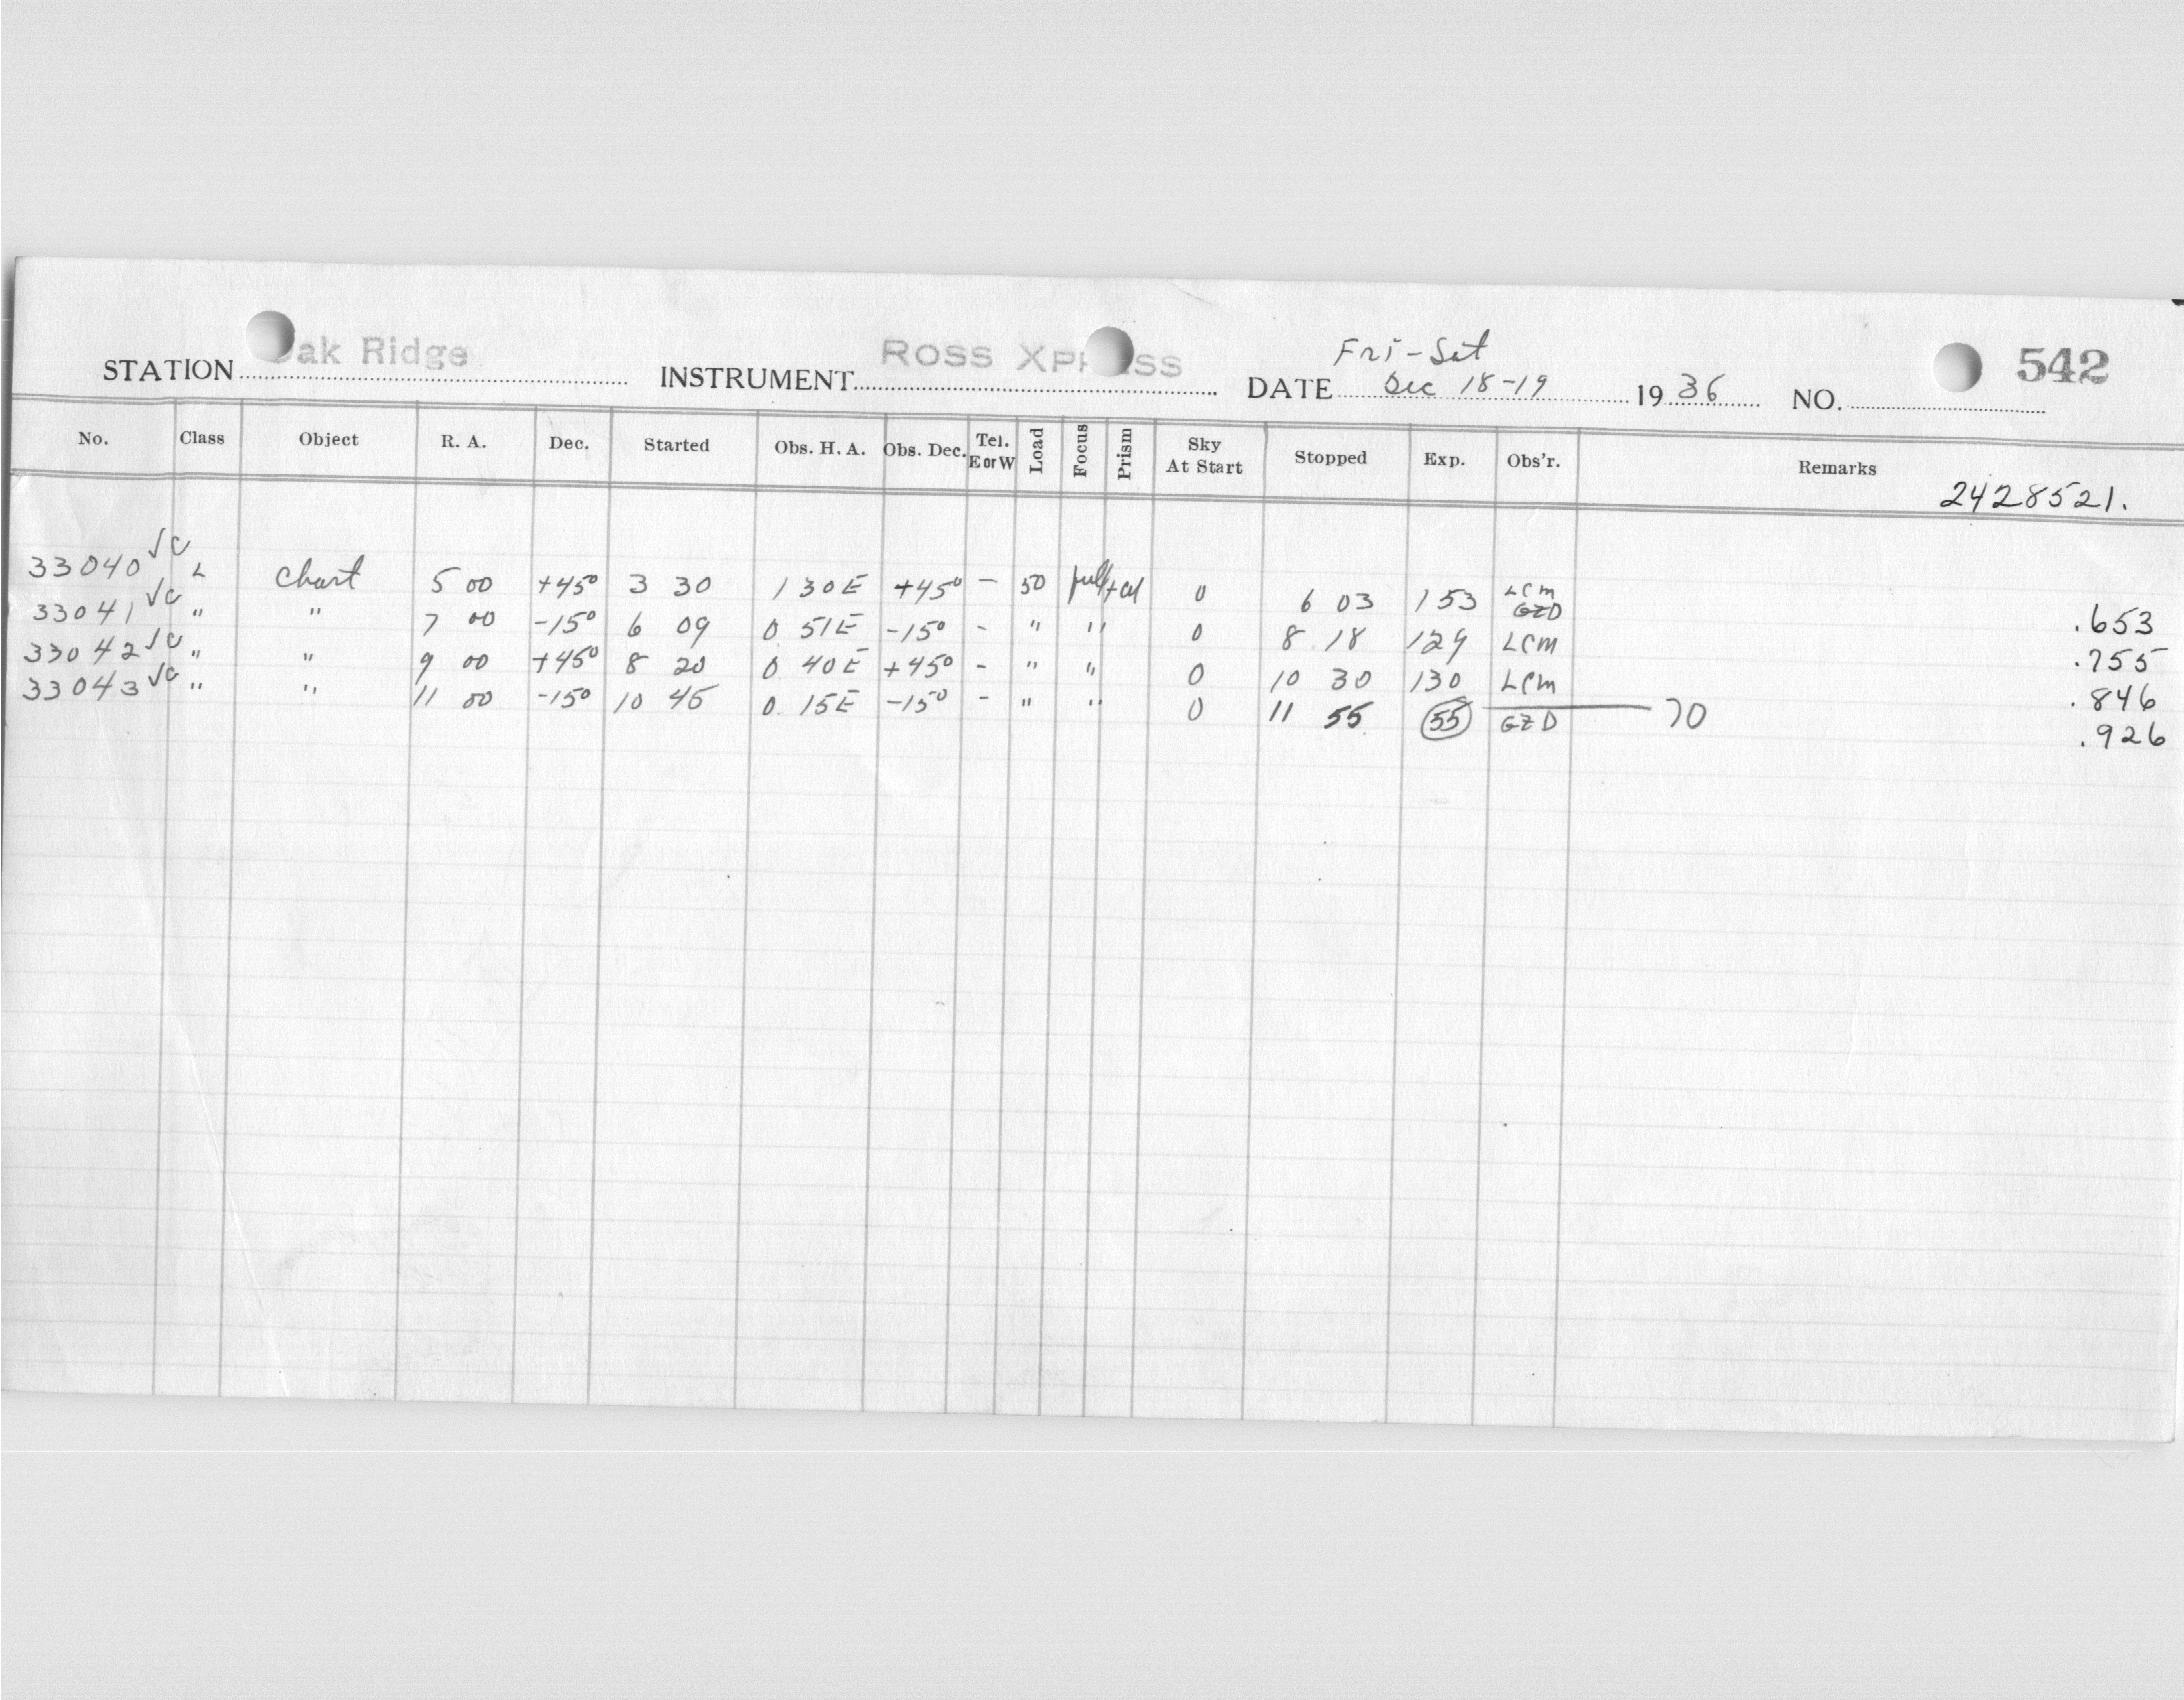 Fri-Sat
STATION ak Ridge INSTRUMENT Ross Xp ss DATE Dec 18-19 1936 NO. 542
No. Class Object R. A. Dec. Started Obs. H. A. Obs. Dec. Tel. E or W Load Focus Prism Sky At Start Stopped Exp. Obs'r. Remarks
2428521.
33040 √C L Chart 5 00 +45° 3 30 1 30E +45° - 50 0 6 03 153 LCM GZD .653
33041 √C " " 7 00 -15° 6 09 0 51E -15° - " " 0 8 18 129 LCM .755
33042 √C " " 9 00 +45° 8 20 0 40E +45° - " " 0 10 30 130 LCM .846
33043 √C " " 11 00 -15° 10 45 0 15E -15° - " " 0 11 55 55 GZD 70 .926